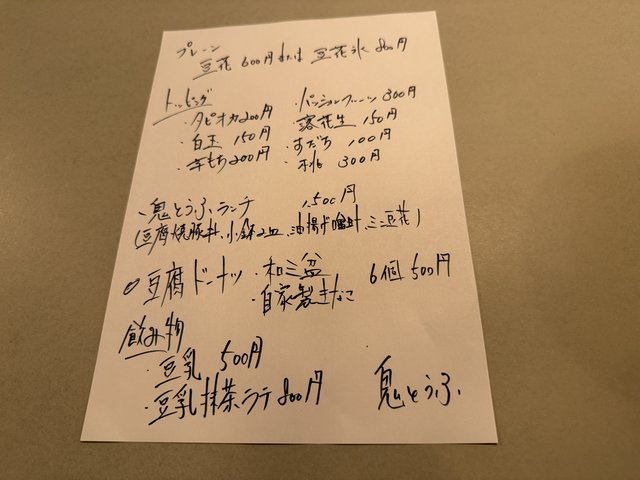 プレーン
豆花 600円 または 豆花氷 800円
トッピング
・タピオカ200円
・パッションフルーツ 300円
・白玉 150円
・落花生 150円
・芋もち200円
・すだち 100円
・桃 300円
・鬼とうふランチ 1,500円
(豆腐焼豚丼、小鉢2皿、油揚げ味噌汁、ミニ豆花)
豆腐ドーナツ ・和三盆 6個 500円
・自家製きなこ
飲み物
・豆乳 500円
・豆乳抹茶ラテ 800円
鬼とうふ